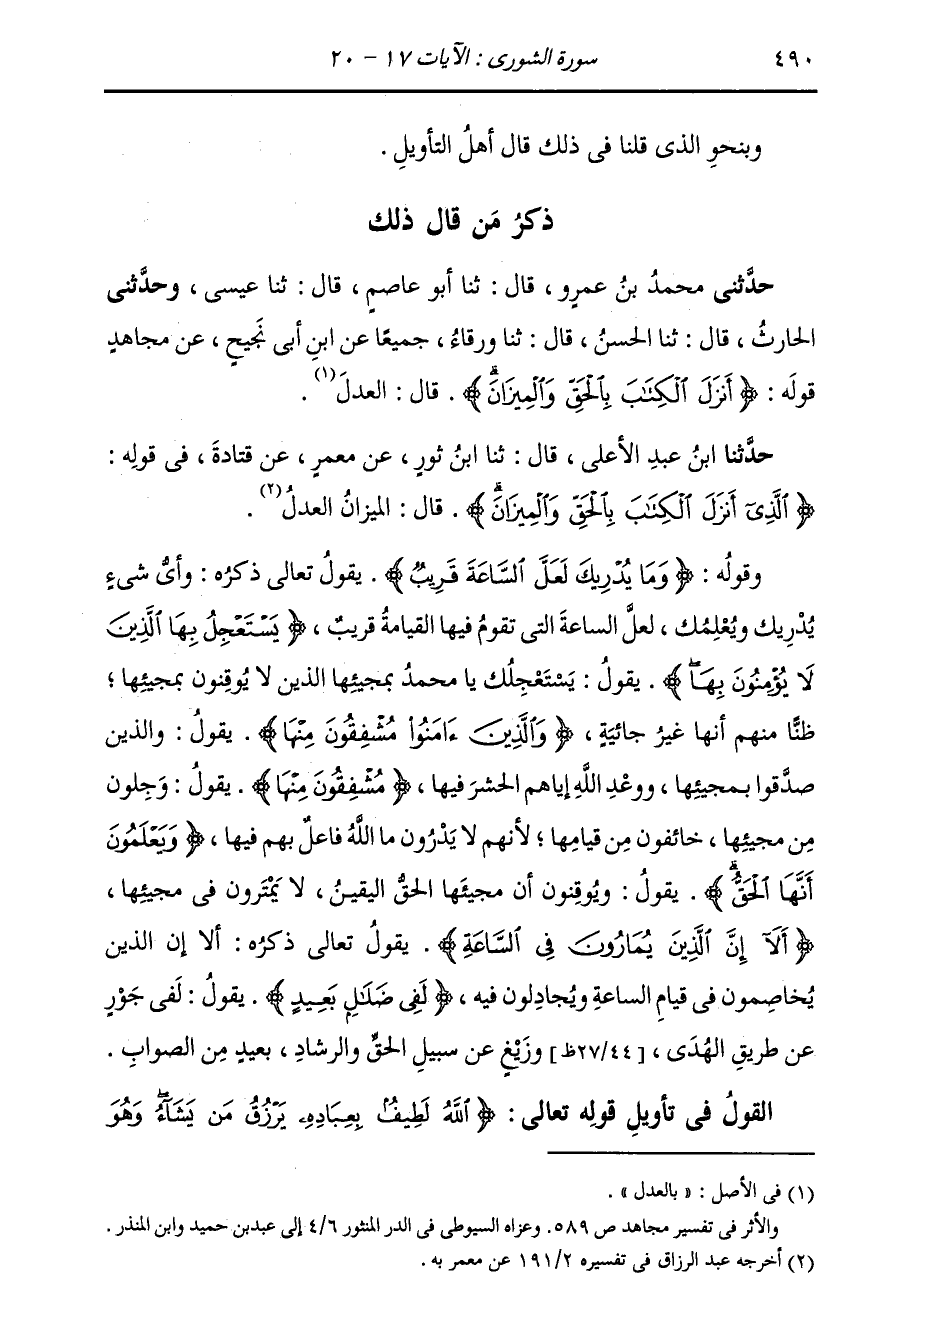 ٤٩٠ سورة الشورى : الآيات ١٧ - ٢٠
وبنحوِ الذى قلنا فى ذلك قال أهلُ التأويلِ .
ذكرُ مَن قال ذلك
حدَّثنى محمدُ بنُ عمرٍو ، قال : ثنا أبو عاصمٍ ، قال : ثنا عيسى ، وحدَّثنى
الحارثُ ، قال : ثنا الحسنُ ، قال : ثنا ورقاءُ ، جميعًا عن ابنِ أبى نَجيحٍ ، عن مجاهدٍ
قولَه : ﴿ أَنزَلَ ٱلْكِتَٰبَ بِٱلْحَقِّ وَٱلْمِيزَانَۗ ﴾ . قال : العدلَ(١) .
حدَّثنا ابنُ عبدِ الأعلى ، قال : ثنا ابنُ ثورٍ ، عن معمرٍ ، عن قتادةَ ، فى قولِه :
﴿ ٱلَّذِىٓ أَنزَلَ ٱلْكِتَٰبَ بِٱلْحَقِّ وَٱلْمِيزَانَۗ ﴾ . قال : الميزانُ العدلُ(٢) .
وقولُه : ﴿ وَمَا يُدْرِيكَ لَعَلَّ ٱلسَّاعَةَ قَرِيبٌ ﴾ . يقولُ تعالى ذكرُه : وأىُّ شىءٍ
يُدْرِيك ويُعْلِمُك ، لعلَّ الساعةَ التى تقومُ فيها القيامةُ قريبٌ ، ﴿ يَسْتَعْجِلُ بِهَا ٱلَّذِينَ
لَا يُؤْمِنُونَ بِهَاۖ ﴾ . يقولُ : يَسْتَعْجِلُك يا محمدُ بمجيئِها الذين لا يُوقِنون بمجيئِها ؛
ظنًّا منهم أنها غيرُ جائيَةٍ ، ﴿ وَٱلَّذِينَ ءَامَنُوا۟ مُشْفِقُونَ مِنْهَا ﴾ . يقولُ : والذين
صدَّقوا بمجيئِها ، ووعْدِ اللَّهِ إياهم الحشرَ فيها ، ﴿ مُشْفِقُونَ مِنْهَا ﴾ . يقولُ : وَجِلون
مِن مجيئِها ، خائفون مِن قيامِها ؛ لأنهم لا يَدْرُون ما اللَّهُ فاعلٌ بهم فيها ، ﴿ وَيَعْلَمُونَ
أَنَّهَا ٱلْحَقُّۗ ﴾ . يقولُ : ويُوقِنون أن مجيئَها الحقُّ اليقينُ ، لا يَمْتَرون فى مجيئِها ،
﴿ أَلَآ إِنَّ ٱلَّذِينَ يُمَارُونَ فِى ٱلسَّاعَةِ ﴾ . يقولُ تعالى ذكرُه : ألا إن الذين
يُخاصِمون فى قيامِ الساعةِ ويُجادِلون فيه ، ﴿ لَفِى ضَلَٰلٍۭ بَعِيدٍ ﴾ . يقولُ : لَفى جَوْرٍ
عن طريقِ الهُدَى ، [٢٧/٤٤ظ] وزَيْغٍ عن سبيلِ الحقِّ والرشادِ ، بعيدٍ مِن الصوابِ .
القولُ فى تأويلِ قولِه تعالى : ﴿ ٱللَّهُ لَطِيفٌۢ بِعِبَادِهِۦ يَرْزُقُ مَن يَشَآءُۖ وَهُوَ
(١) فى الأصل : « بالعدل » .
والأثر فى تفسير مجاهد ص ٥٨٩. وعزاه السيوطى فى الدر المنثور ٤/٦ إلى عبد بن حميد وابن المنذر .
(٢) أخرجه عبد الرزاق فى تفسيره ١٩١/٢ عن معمر به .